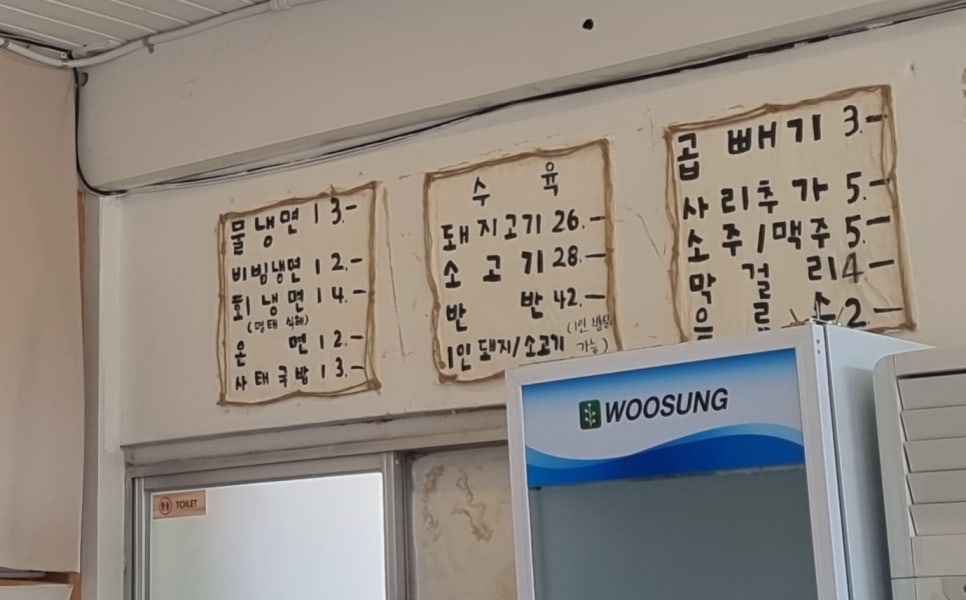 물냉면 13.-
비빔냉면 12.-
회냉면 14.-
(명태 식해)
온면 12.-
사태국밥 13.-
수육
돼지고기 26.-
소고기 28.-
반반 42.-
1인 돼지/소고기 (1인 방문 가능)
곱빼기 3.-
사리추가 5.-
소주/맥주 5.-
막걸리 4.-
음료 2.-
WOOSUNG
TOILET